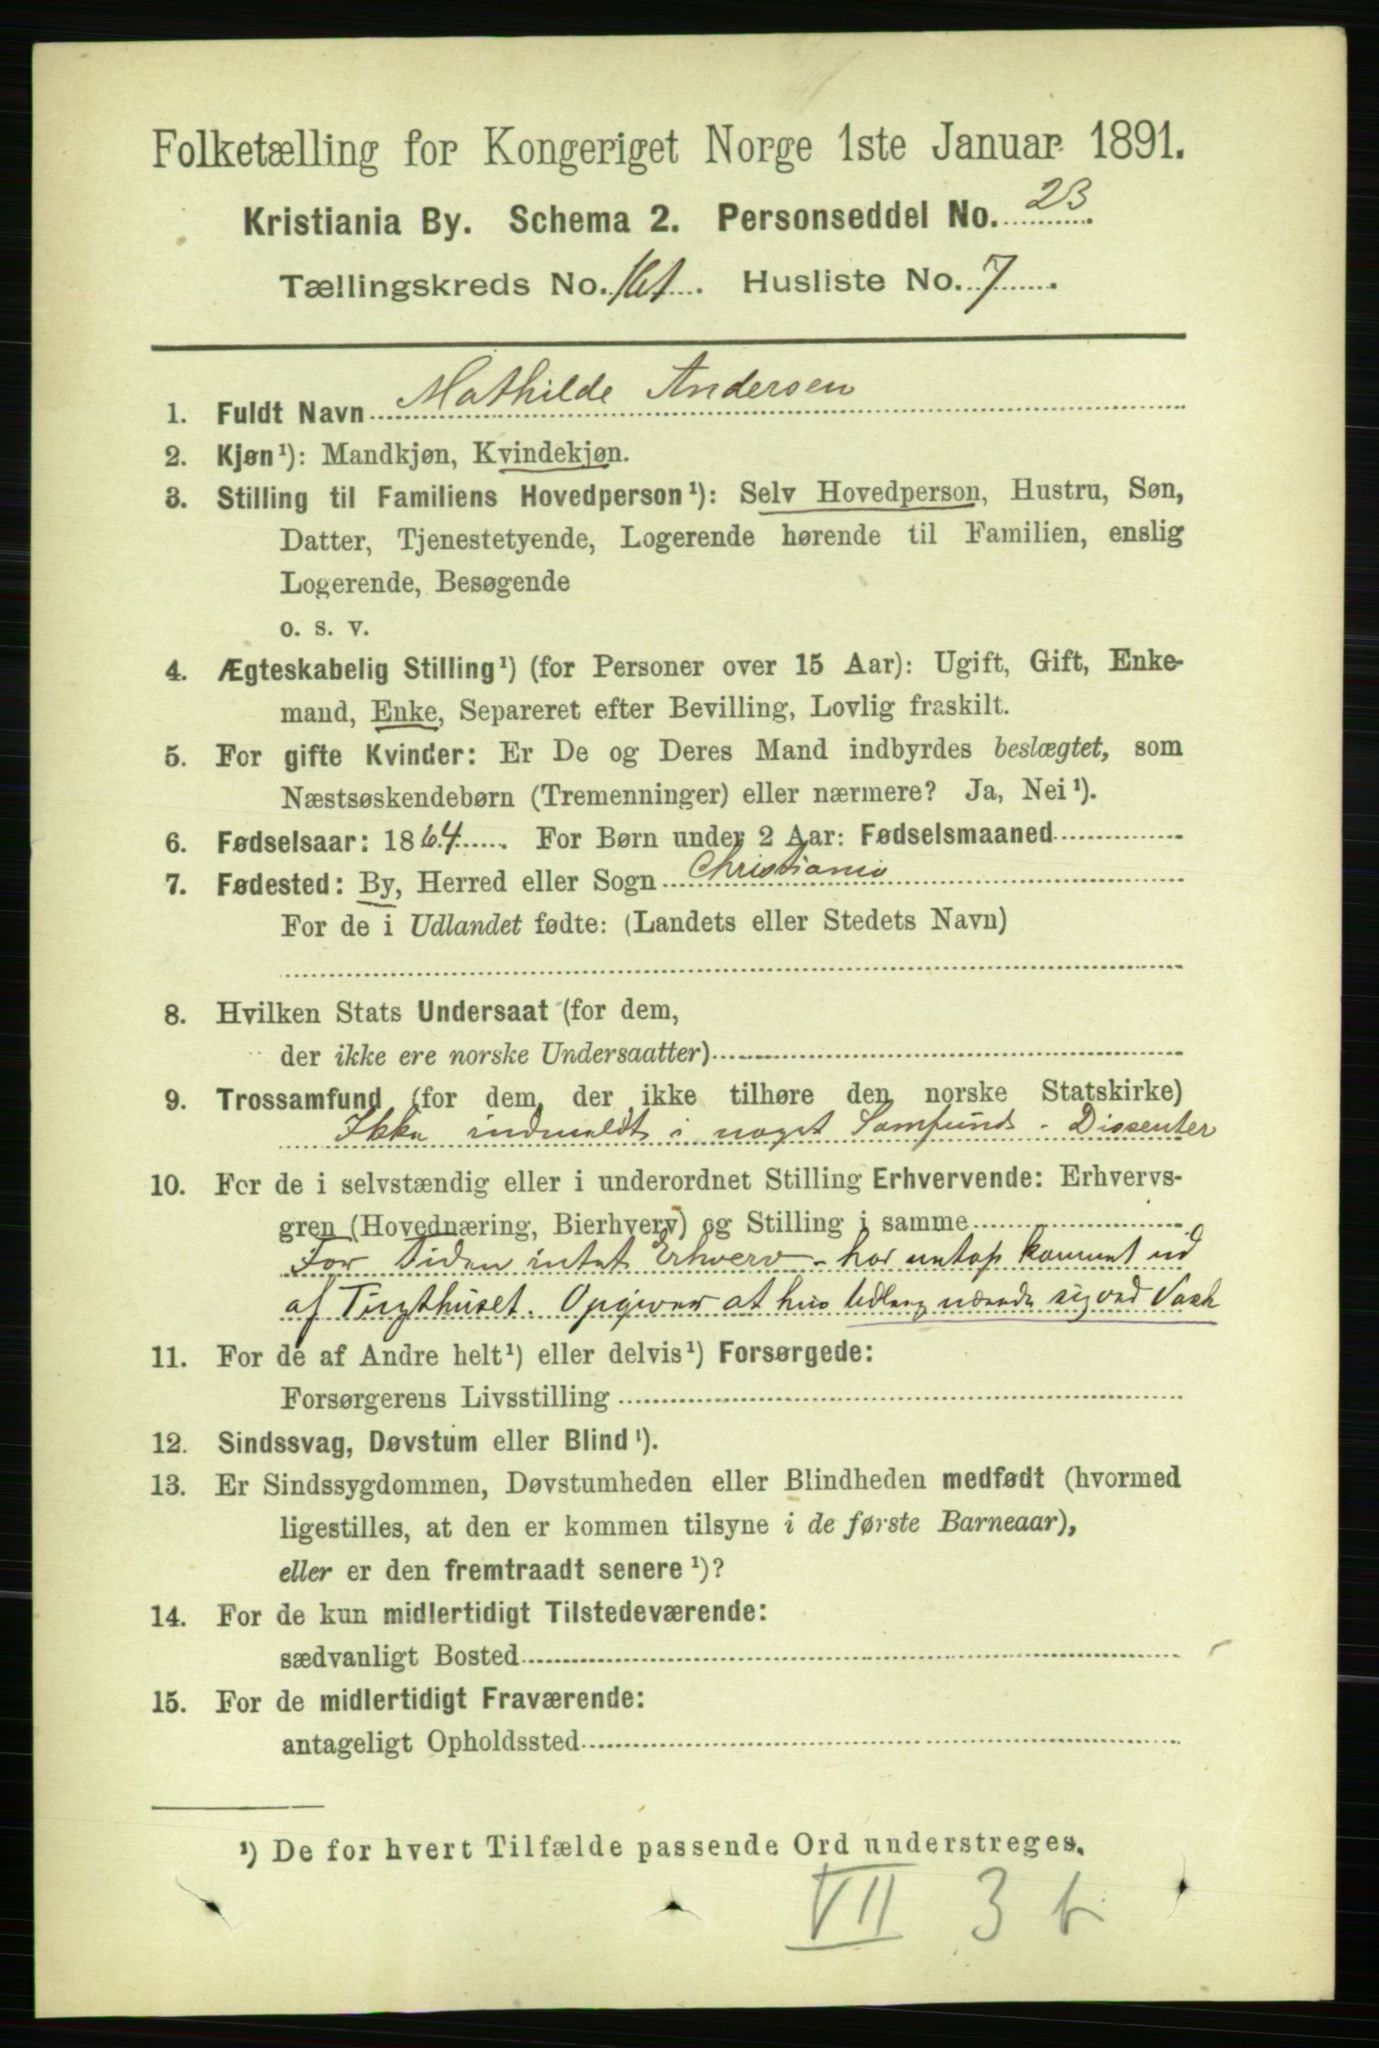 Folketælling for Kongeriget Norge 1ste Januar 1891.
Kristiania By. Schema 2. Personseddel No. 23.
Tællingskreds No. 161. Husliste No. 7.
1. Fuldt Navn Mathilde Andersen
2. Kjøn¹): Mandkjøn, Kvindekjøn.
3. Stilling til Familiens Hovedperson¹): Selv Hovedperson, Hustru, Søn,
Datter, Tjenestetyende, Logerende hørende til Familien, enslig
Logerende, Besøgende
o. s. v.
4. Ægteskabelig Stilling¹) (for Personer over 15 Aar): Ugift, Gift, Enke-
mand, Enke, Separeret efter Bevilling, Lovlig fraskilt.
5. For gifte Kvinder: Er De og Deres Mand indbyrdes beslægtet, som
Næstsøskendebørn (Tremenninger) eller nærmere? Ja, Nei¹).
6. Fødselsaar: 1864. For Børn under 2 Aar: Fødselsmaaned
7. Fødested: By, Herred eller Sogn Christiania
For de i Udlandet fødte: (Landets eller Stedets Navn)
8. Hvilken Stats Undersaat (for dem,
der ikke ere norske Undersaatter)
9. Trossamfund (for dem, der ikke tilhøre den norske Statskirke)
Ikke indmeldt i noget Samfund - Dissenter
10. For de i selvstændig eller i underordnet Stilling Erhvervende: Erhvervs-
gren (Hovednæring, Bierhverv) og Stilling i samme
For Tiden intet Erhverv - har kommet ud
af Tugthuset. Opgiver at nærede sig ved Vask
11. For de af Andre helt¹) eller delvis¹) Forsørgede:
Forsørgerens Livsstilling
12. Sindssvag, Døvstum eller Blind¹).
13. Er Sindssygdommen, Døvstumheden eller Blindheden medfødt (hvormed
ligestilles, at den er kommen tilsyne i de første Barneaar),
eller er den fremtraadt senere¹)?
14. For de kun midlertidigt Tilstedeværende:
sædvanligt Bosted
15. For de midlertidigt Fraværende:
antageligt Opholdssted
¹) De for hvert Tilfælde passende Ord understreges.
VII 3 b